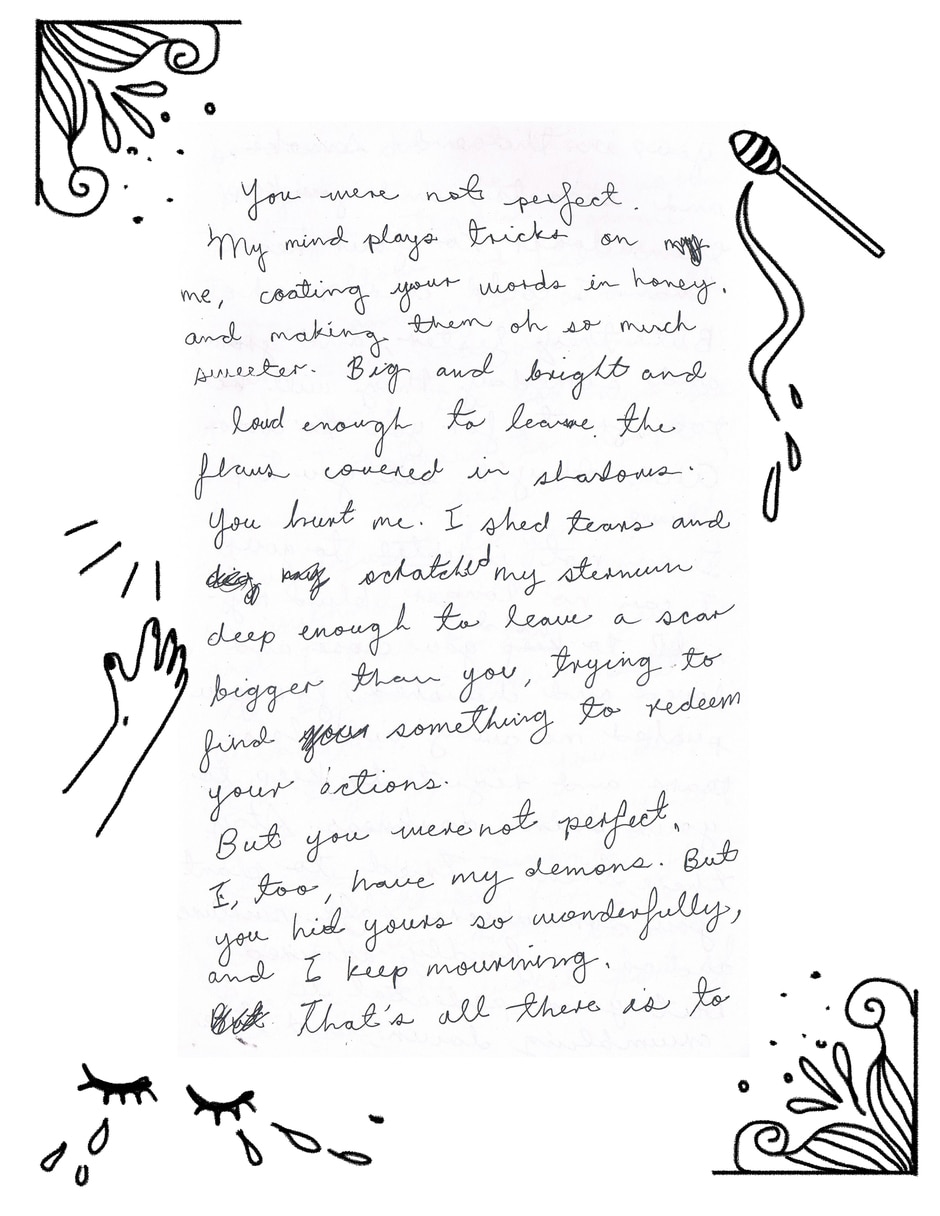 You were not perfect.
My mind plays tricks on
me, coating your words in honey.
and making them oh so much
sweeter. Big and bright and
loud enough to leave the
flaws covered in shadows.
You hurt me. I shed tears and
scratched my sternum
deep enough to leave a scar
bigger than you, trying to
find something to redeem
your actions.
But you were not perfect.
I, too, have my demons. But
you hid yours so wonderfully,
and I keep mourining.
That's all there is to